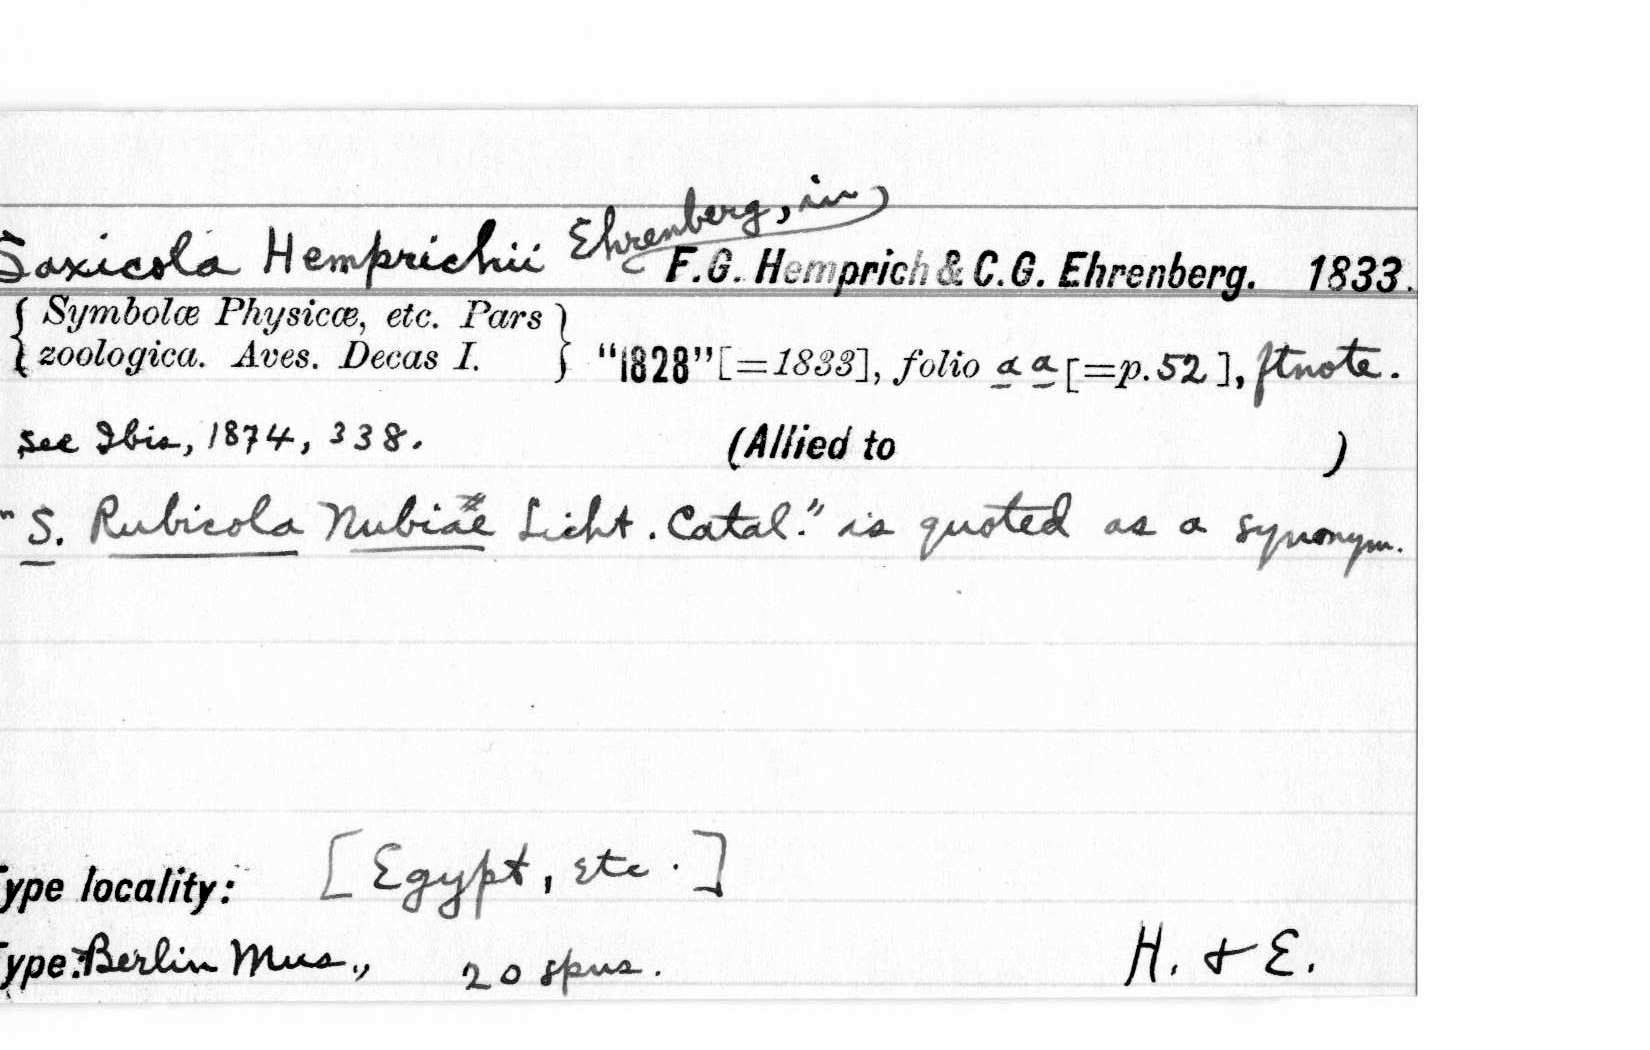 Saxicola Hemprichii Ehrenberg, in
F.G. Hemprich & C.G. Ehrenberg. 1833.
{ Symbolæ Physicæ, etc. Pars
zoologica. Aves. Decas I. } "1828" [=1833], folio a a [=p. 52], ftnote.
see Ibis, 1874, 338. (Allied to )
"S. Rubicola Nubiae Licht. Catal." is quoted as a synonym.
Type locality: [Egypt, etc.]
Type: Berlin Mus., 20 spns. H. & E.